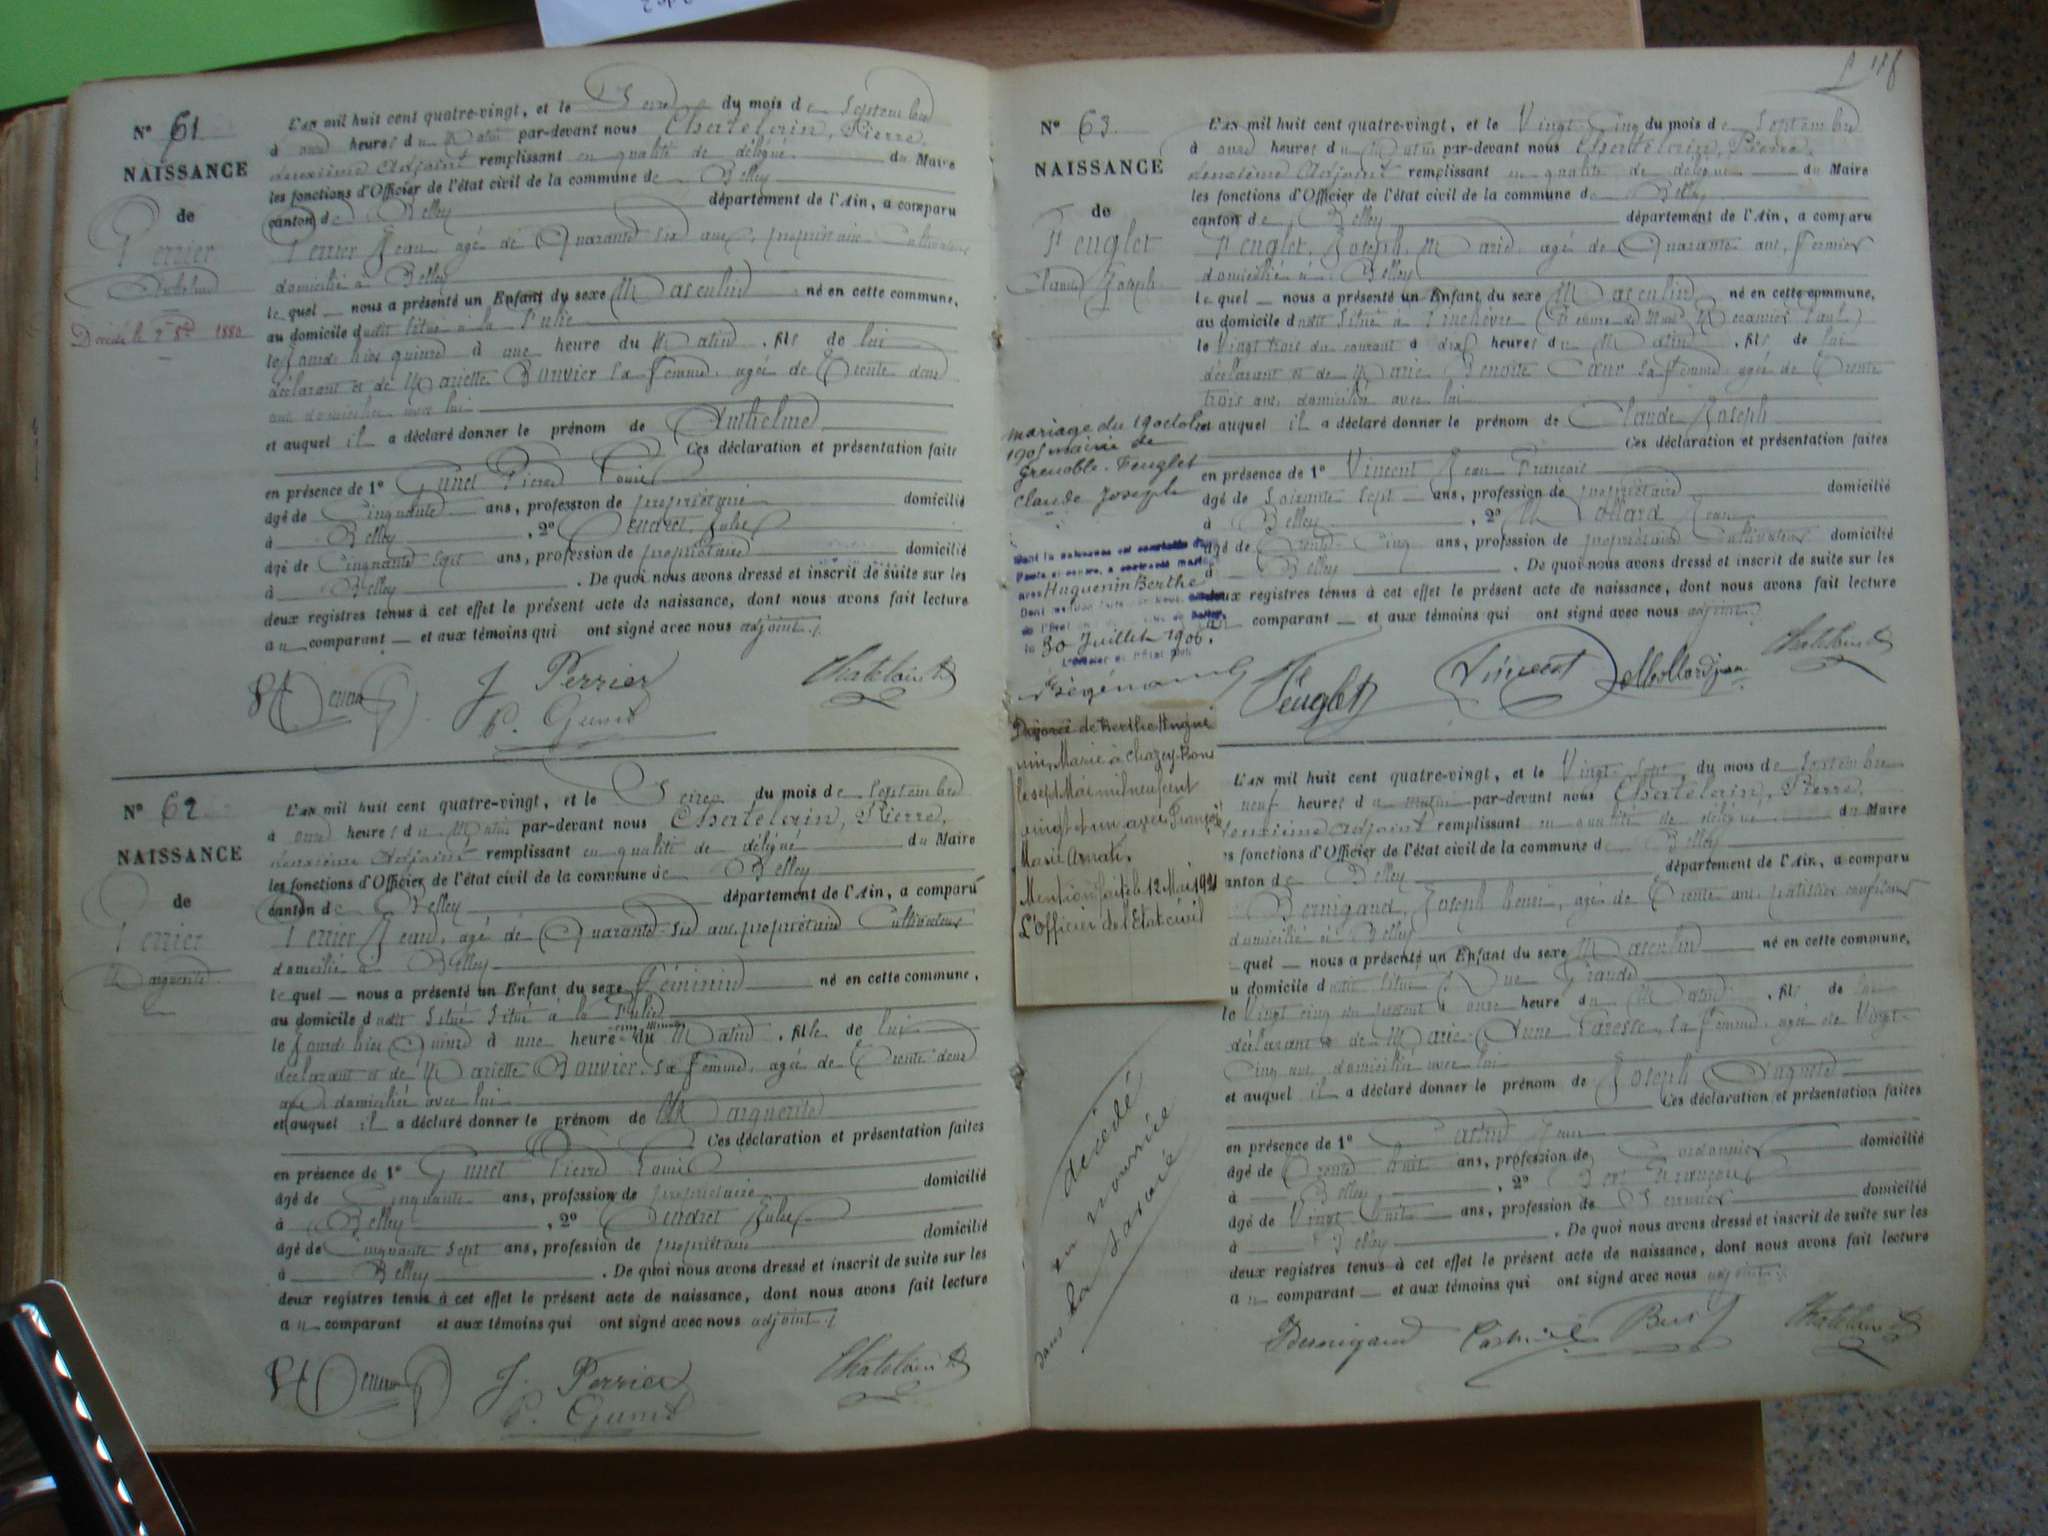 N° 61
NAISSANCE
de
Perrier
Anthelme
L'AN mil huit cent quatre-vingt, et le Seize du mois de Septembre
à onze heures du Matin par-devant nous Chatelain, Pierre,
deuxième Adjoint remplissant en qualité de délégué du Maire
les fonctions d'Officier de l'état civil de la commune de Belley
canton de Belley département de l'Ain, a comparu
Perrier Jean, agé de Quarante six ans, propriétaire Cultivateur
domicilié à Belley
lequel nous a présenté un Enfant du sexe Masculin né en cette commune,
au domicile dudit situé à la
le jourd'hier quinze à une heure du Matin, fils de lui
déclarant et de Mariette Bouvier sa femme, agée de Trente deux
ans domiciliée avec lui
et auquel il a déclaré donner le prénom de Anthelme
Ces déclaration et présentation faite
en présence de 1° Gunet Pierre Louis
âgé de Cinquante ans, profession de propriétaire domicilié
à Belley, 2° Jules
âgé de Cinquante sept ans, profession de propriétaire domicilié
à Belley. De quoi nous avons dressé et inscrit de suite sur les
deux registres tenus à cet effet le présent acte de naissance, dont nous avons fait lecture
au comparant et aux témoins qui ont signé avec nous adjoint.
J. Perrier
Chatelain
P. Gunet
N° 62
NAISSANCE
de
Perrier
Marguerite
L'AN mil huit cent quatre-vingt, et le Seize du mois de Septembre
à onze heures du Matin par-devant nous Chatelain, Pierre,
deuxième Adjoint remplissant en qualité de délégué du Maire
les fonctions d'Officier de l'état civil de la commune de Belley
canton de Belley département de l'Ain, a comparu
Perrier Jean, agé de Quarante six ans, propriétaire Cultivateur
domicilié à Belley
lequel nous a présenté un Enfant du sexe Féminin né en cette commune,
au domicile dudit Situé Situé à la
le jourd'hier Quinze à une heure cinq minutes du Matin, fille de lui
déclarant et de Mariette Bouvier, sa femme, agée de Trente deux
ans domiciliée avec lui
et auquel il a déclaré donner le prénom de Marguerite
Ces déclaration et présentation faites
en présence de 1° Gunet Pierre Louis
âgé de Cinquante ans, profession de propriétaire domicilié
à Belley, 2° Jules
âgé de Cinquante sept ans, profession de propriétaire domicilié
à Belley. De quoi nous avons dressé et inscrit de suite sur les
deux registres tenus à cet effet le présent acte de naissance, dont nous avons fait lecture
au comparant et aux témoins qui ont signé avec nous adjoint.
J. Perrier
Chatelain
P. Gunet
N° 63
NAISSANCE
de
Feuglet
Claude Joseph
L'AN mil huit cent quatre-vingt, et le Vingt Cinq du mois de Septembre
à onze heures du Matin par-devant nous Chatelain, Pierre,
deuxième Adjoint remplissant en qualité de délégué du Maire
les fonctions d'Officier de l'état civil de la commune de Belley
canton de Belley département de l'Ain, a comparu
Feuglet, Joseph, Marie, agé de Quarante ans, Fermier
domicilié à Belley
lequel nous a présenté un Enfant du sexe Masculin né en cette commune,
au domicile dudit Situé à
le Vingt trois du courant à dix heures du Matin, fils de lui
déclarant et de Marie Benoite Cœur sa femme agée de Trente
trois ans, domiciliée avec lui
et auquel il a déclaré donner le prénom de Claude Joseph
Ces déclaration et présentation faites
en présence de 1° Vincent Jean François
âgé de Soixante Sept ans, profession de propriétaire domicilié
à Belley, 2° Mollard Jean
âgé de Trente Cinq ans, profession de propriétaire Cultivateur domicilié
à Belley. De quoi nous avons dressé et inscrit de suite sur les
deux registres tenus à cet effet le présent acte de naissance, dont nous avons fait lecture
au comparant et aux témoins qui ont signé avec nous adjoint.
Feuglet Vincent Mollard jean Chatelain
mariage du 19 octobre
1905 mairie de
Grenoble. Feuglet
Claude Joseph
avec Huguenin Berthe
le 30 Juillet 1906.
L'Officier de l'Etat Civil
Divorcé de Berthe Hugue
nin, Marié à Chazey-Bons
le sept Mai mil neuf cent
vingt et un avec Françoise
Marie
Mention faite le 12 Mai 1921
L'Officier de l'Etat civil
L'AN mil huit cent quatre-vingt, et le Vingt Sept du mois de Septembre
neuf heures du matin par-devant nous Chatelain, Pierre,
deuxième adjoint remplissant en qualité de délégué du Maire
les fonctions d'Officier de l'état civil de la commune de Belley
canton de Belley département de l'Ain, a comparu
Bernigaud, Joseph henri, agé de Trente ans, patissier confiseur
domicilié à Belley
quel nous a présenté un Enfant du sexe Masculin né en cette commune,
au domicile dudit situé Rue Grande
le Vingt cinq du présent à onze heures du Matin, fils de lui
déclarant et de Marie Anne sa femme agée de Vingt
Cinq ans, domiciliée avec lui
et auquel il a déclaré donner le prénom de Joseph
Ces déclaration et présentation faites
en présence de 1° Jean
âgé de Trente huit ans, profession de Cordonnier domicilié
à Belley, 2° François
âgé de Vingt huit ans, profession de domicilié
à Belley. De quoi nous avons dressé et inscrit de suite sur les
deux registres tenus à cet effet le présent acte de naissance, dont nous avons fait lecture
au comparant et aux témoins qui ont signé avec nous adjoint.
Bernigaud
Chatelain
décédé
en nourrice
dans la Savoie